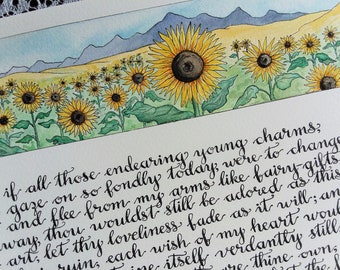 if all those endearing young charms;
gaze on so fondly today; were to change
and flee from my arms like fairy gifts
way, thou wouldst still be adored as this
art, let thy loveliness fade as it will; and
ruin, each wish of my heart would
itself verdantly still
were thine own